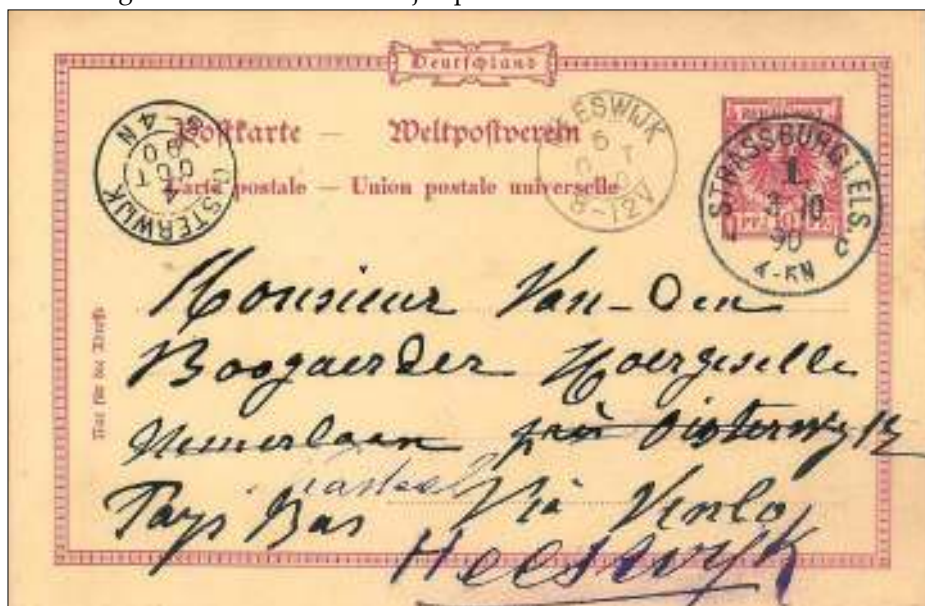 Deutschland
Postkarte — Weltpostverein
Carte postale — Union postale universelle
OISTERWIJK
4
OCT
90
4 N
HEESWIJK
6
8-12V
REICHSPOST
10
STRASSBURG (ELS.
1.
10
90
4-5N
c
Nur für die Adresse
Monsieur Van-Den
Boogaerder
Nemerlaan près Oisterwyk
Kasteel
Pays Bas Via Venlo
Heeswyk